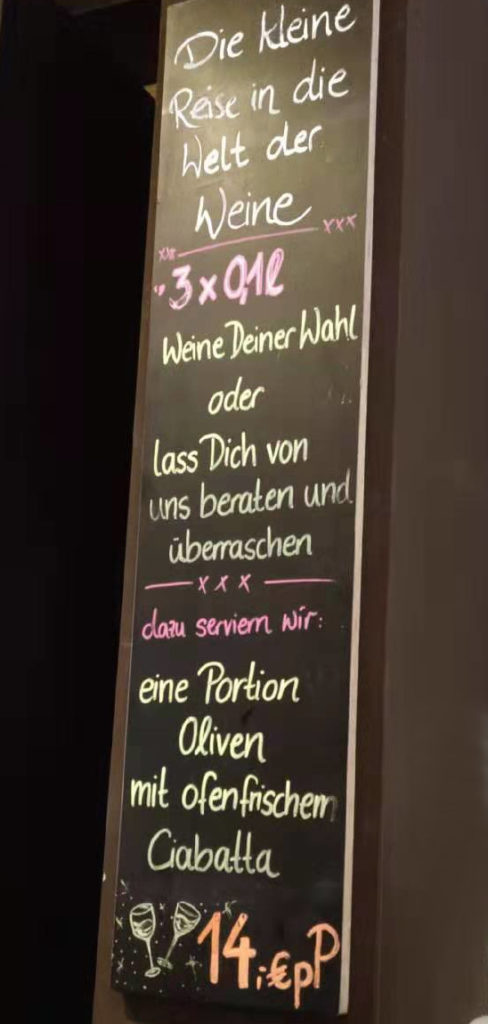 Die kleine
Reise in die
Welt der
Weine
xxx xxx
3 x 0,1l
Weine Deiner Wahl
oder
lass Dich von
uns beraten und
überraschen
x x x
dazu serviern wir:
eine Portion
Oliven
mit ofenfrischem
Ciabatta
14,-€ pP